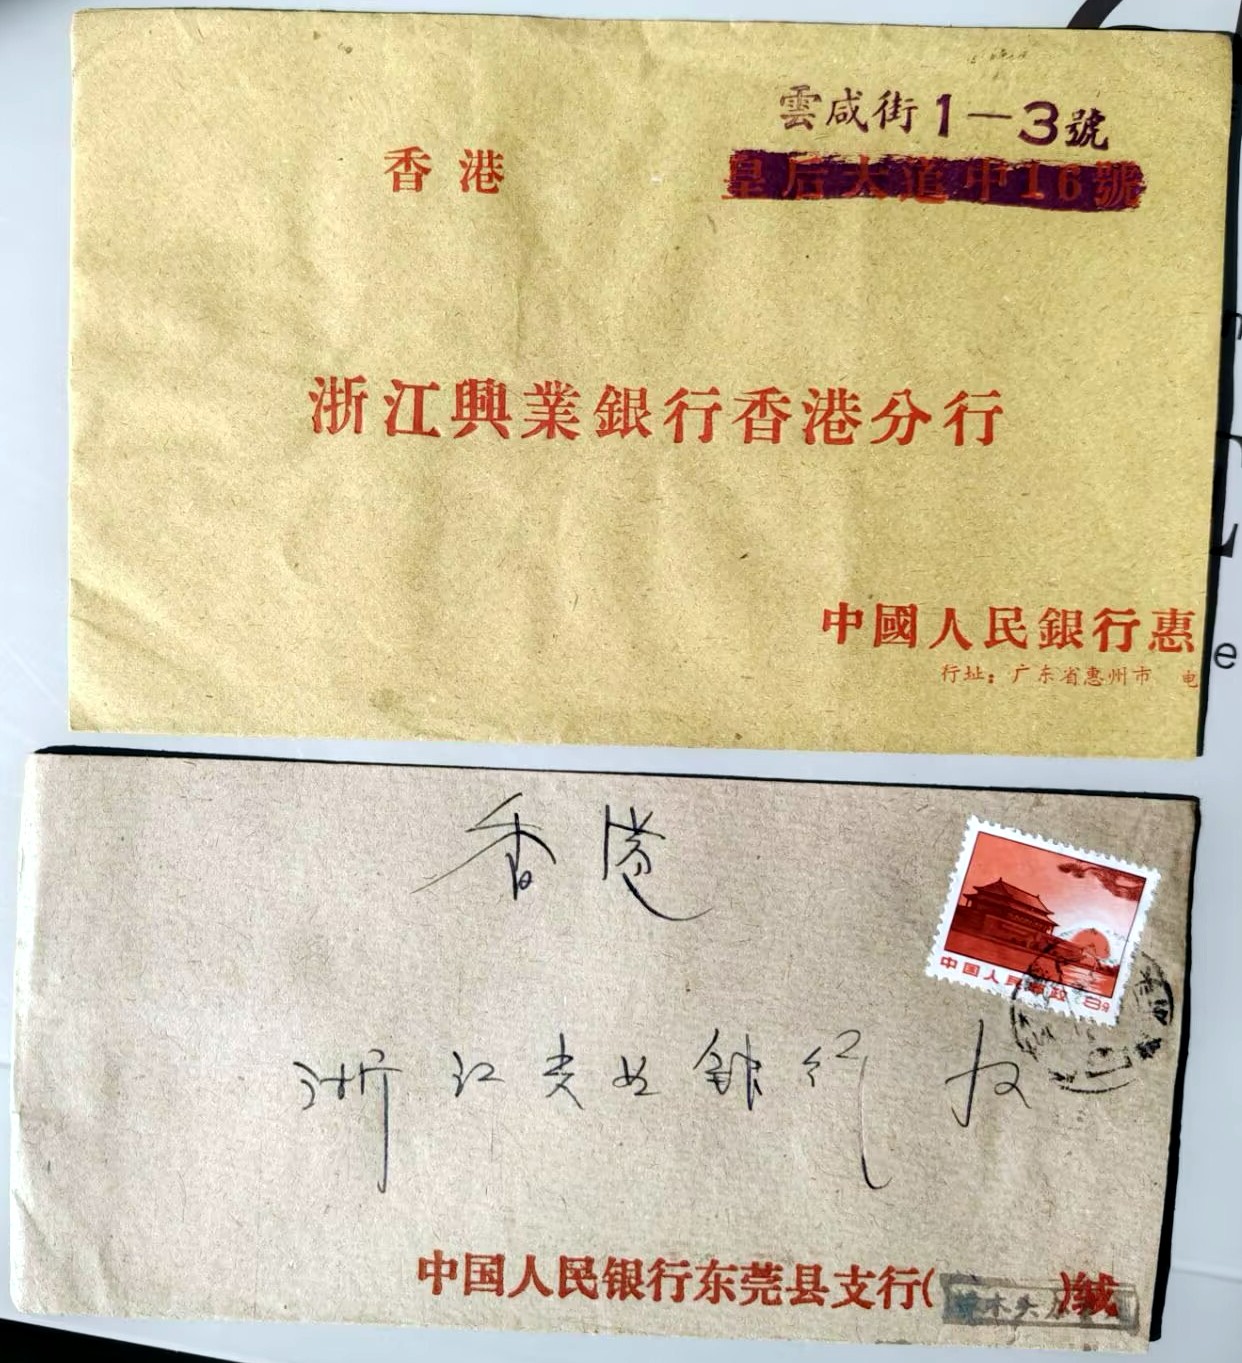 雲咸街1—3號
香港
皇后大道中16號
浙江興業銀行香港分行
中國人民銀行惠
行址：广东省惠州市 电
香港
中国人民邮政 8分
浙江兴业银行 收
中国人民银行东莞县支行( )缄